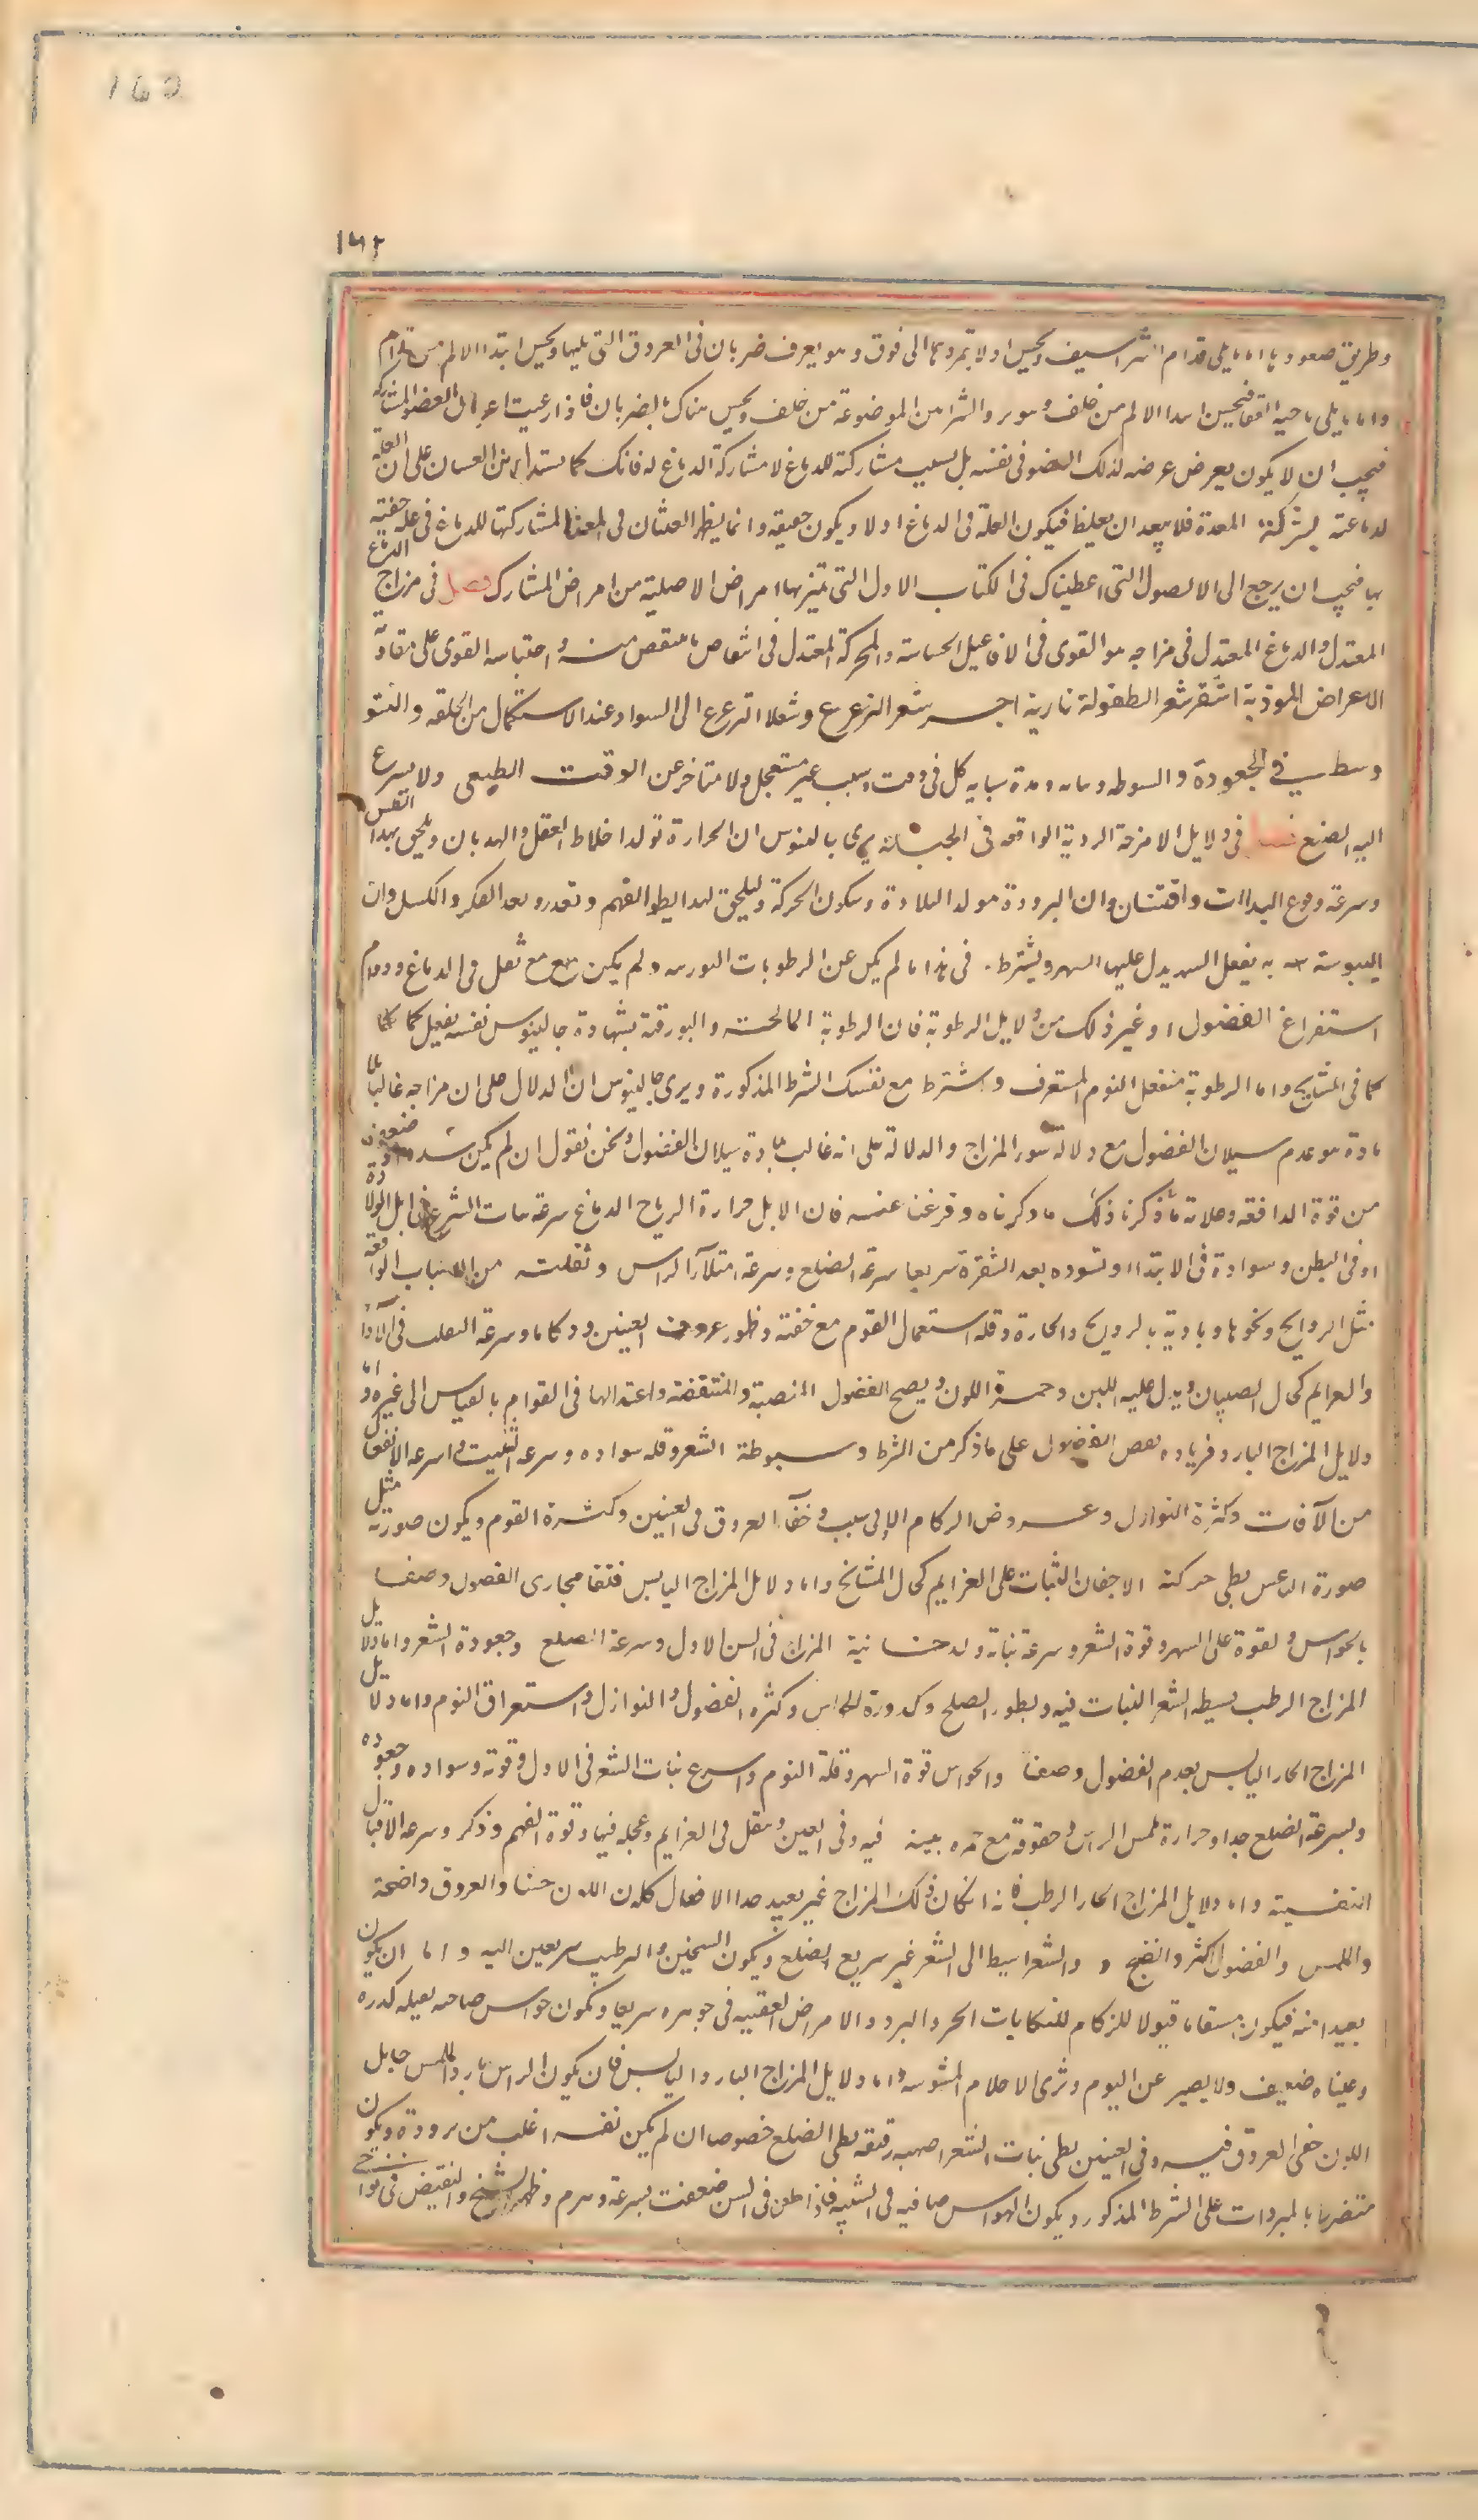 162
١٦٢
وطريق صعودها اما يلي قدام الشراسيف ويحس اولا بتمددها الى فوق وهو يعرف ضربان في العروق التي يليها ويحس ابتدا الالم من قدام
واما ما يلي ناحية القفا فيحس ابتدا الالم من خلف وبمرور الشرامن الموضوعة من خلف ويحس هناك بالضربان فاذا رعيت اعراض العضو المشارك
فيجب ان لا يكون يعرض عرضه لذلك العضو في نفسه بل بسبب مشاركته للدماغ لا مشاركة الدماغ له فانك كما يستدل من الغسان على ان العلة
لدماغه بشركة المعدة فلا يبعد ان يغلط فيكون العلة في الدماغ اولا ويكون خفيفة وانما يظهر الغشان في المعدة لمشاركتها للدماغ في علة خفية
بها فيجب ان يرجع الى الاصول التي اعطيناك في الكتاب الاول التي تميزبها امراض الاصلية من امراض المشارك فصل في مزاج الدماغ
المعتدل والدماغ المعتدل في مزاجه هو القوى في الافاعيل الحساسة والمحركة المعتدل في انتفاض ما ينتقض منه واحتباسه القوى على مقاومة
الاعراض الموذية اشقر شعر الطفولة نارية احمر شعر الترعرع وشعلا الترعرع الى السواد عند الاستكمال من الخلقه والنشو
وسط في الجعودة والسبوطه ونباته ومدة شبابه كل في وقت وشيب غير مستعجل ولا متاخر عن الوقت الطبيعى ولا يسرع
اليه الصلع فصل في دلايل الامزجة الردية الواقعه في الجبلة يرى جالينوس ان الحرارة تولد اخلاط العقل والهذيان ويلحق بهذا الطيش
وسرعة وقوع البداات وافتنان وان البرودة مولد البلادة وسكون الحركة ويلحق لهذا بطو الفهم وتعذر بعد الفكر والكسل وان
اليبوسة به يفعل السهر يدل عليها السهر ويشترط في هذا ما لم يكن عن الرطوبات البورقيه ولم يكن مع ثقل في الدماغ ودوام
استفراغ الفضول او غير ذلك من دلايل الرطوبة فان الرطوبة المالحة والبورقية بشهادة جالينوس نفسه يفعل كما
كما في المشايخ واما الرطوبة فتفعل النوم المستغرق واشترط مع نفسك الشرط المذكورة ويرى جالينوس ان الدلال على ان مزاجه غالب بلا
مادة هو عدم سيلان الفضول مع دلالة سوء المزاج والدلالة على انه غالب بمادة سيلان الفضول ونحن نقول ان لم يكن سدد وضعف
من قوة الدافعه وعلامة ما ذكرنا ذلك ما ذكرناه وفرغنا عنه فان الاول حرارة الرياح الدماغ سرعة نبات الشعر في اول الولادة
او في البطن وسوادة في الابتدا او تسوده بعد الشقرة سريعا سرعة الصلع وسرعة امتلاء الراس وثقله من الاسباب الواقعة
مثل الروايح ونحوها وباديه بالروايح والحارة وقلة استعمال النوم مع خفته وظهور عروق العينين وذكاءا وسرعة التقلب في الآراء
والعزايم كحال الصبيان ويدل عليه اللبن وحمرة اللون ونضج الفضول المنصبة والمنتقضة واعتدالها في القوام بالقياس الى غيره واما
دلايل المزاج البارد فزياده بعض الفضول على ما ذكر من الشرط وسبوطة الشعر وقلة سواده وسرعة الشيب وسرعة الانفعال
من الآفات وكثرة النوازل وعروض الزكام لادنى سبب وخفاء العروق في العينين وكثرة النوم ويكون صورته مثل
صورة الناعس بطي حركة الاجفان الثبات على العزايم كحال المشائخ واما دلائل المزاج اليابس فنقا مجارى الفضول وصفا
الحواس والقوة على السهر وقوة الشعر وسرعة نباته ولدخانية المزاج في السن الاول وسرعة الصلع وجعودة الشعر واما دلايل
المزاج الرطب سبطه الشعر النبات فيه وبطو الصلع وكدورة الحواس وكثره الفضول والنوازل واستغراق النوم واما دلايل
المزاج الحار اليابس بعدم الفضول وصفا والحواس قوة السهر وقلة النوم واسرع نبات الشعر في الاول وقوته وسواده وجعوده
وبسرعة الصلع جدا وحرارة ملمس الراس وجفوفة مع حمره بينة فيه وفي العين وينقل في العزايم وعجله فيها وقوة الفهم وذكر وسرعة الافعال
النفسية واما دلايل المزاج الحار الرطب فان كان ذلك المزاج غير بعيد جدا الافعال كان اللون حسنا والعروق واضحة
والملمس والفضول اكثر وانضج والشعر اسبط الى الشعر غير سريع الصلع ويكون التسخين والترطيب سريعين اليه واما ان يكون
بعيدا منه فيكون مسقاما قبولا للزكام للنكايات الحر والبرد والامراض العفنيه في جوهره سريعا وتكون حواس صاحبه ثقيله كدره
وعيناه ضعيف ولا يصبر عن النوم وترى الاحلام المشوشه واما دلايل المزاج البارد اليابس فان يكون الراس بارد الملمس حايل
اللون خفي العروق فيه وفي العينين بطي نبات الشعر اصهب رقيقه بطي الصلع خصوصا ان لم يكن نفسه اغلب من برودة ويكون
متضرسا بالمبردات على الشرط المذكور ويكون الحواس صافيه في الشبيبه فاذا طعن في السن ضعفت بسرعة وهرم وظهر التشنج والتقبض في نواحى